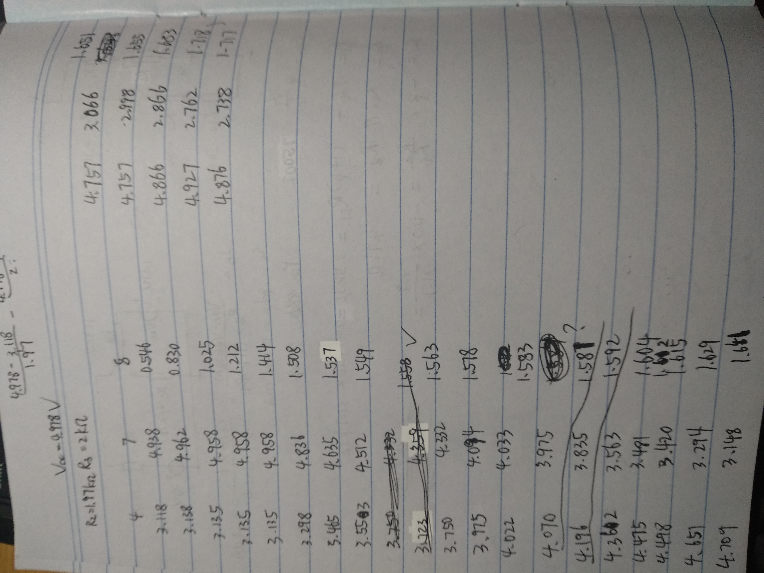 4.978-3.118
1.97
Vcc=4.978V
Rc=1.97kΩ R3=2kΩ
4 7 8
3.118 4.938 0.546
3.138 4.962 0.830
3.135 4.958 1.025
3.135 4.958 1.212
3.135 4.958 1.414
3.298 4.836 1.508
3.465 4.635 1.537
3.553 4.512 1.549
3.750 4.332 1.558 √
3.723 4.359
3.750 4.332 1.563
3.975 4.094 1.578
4.022 4.033 1.583
4.070 3.975
4.196 3.835 1.581?
4.362 3.563 1.592
4.475 3.491 1.604
4.498 3.420 1.615
4.651 3.294 1.629
4.709 3.148
4.757 3.066 1.651
4.757 2.998 1.655
4.866 2.866 1.683
4.927 2.762 1.718
4.876 2.738 1.717